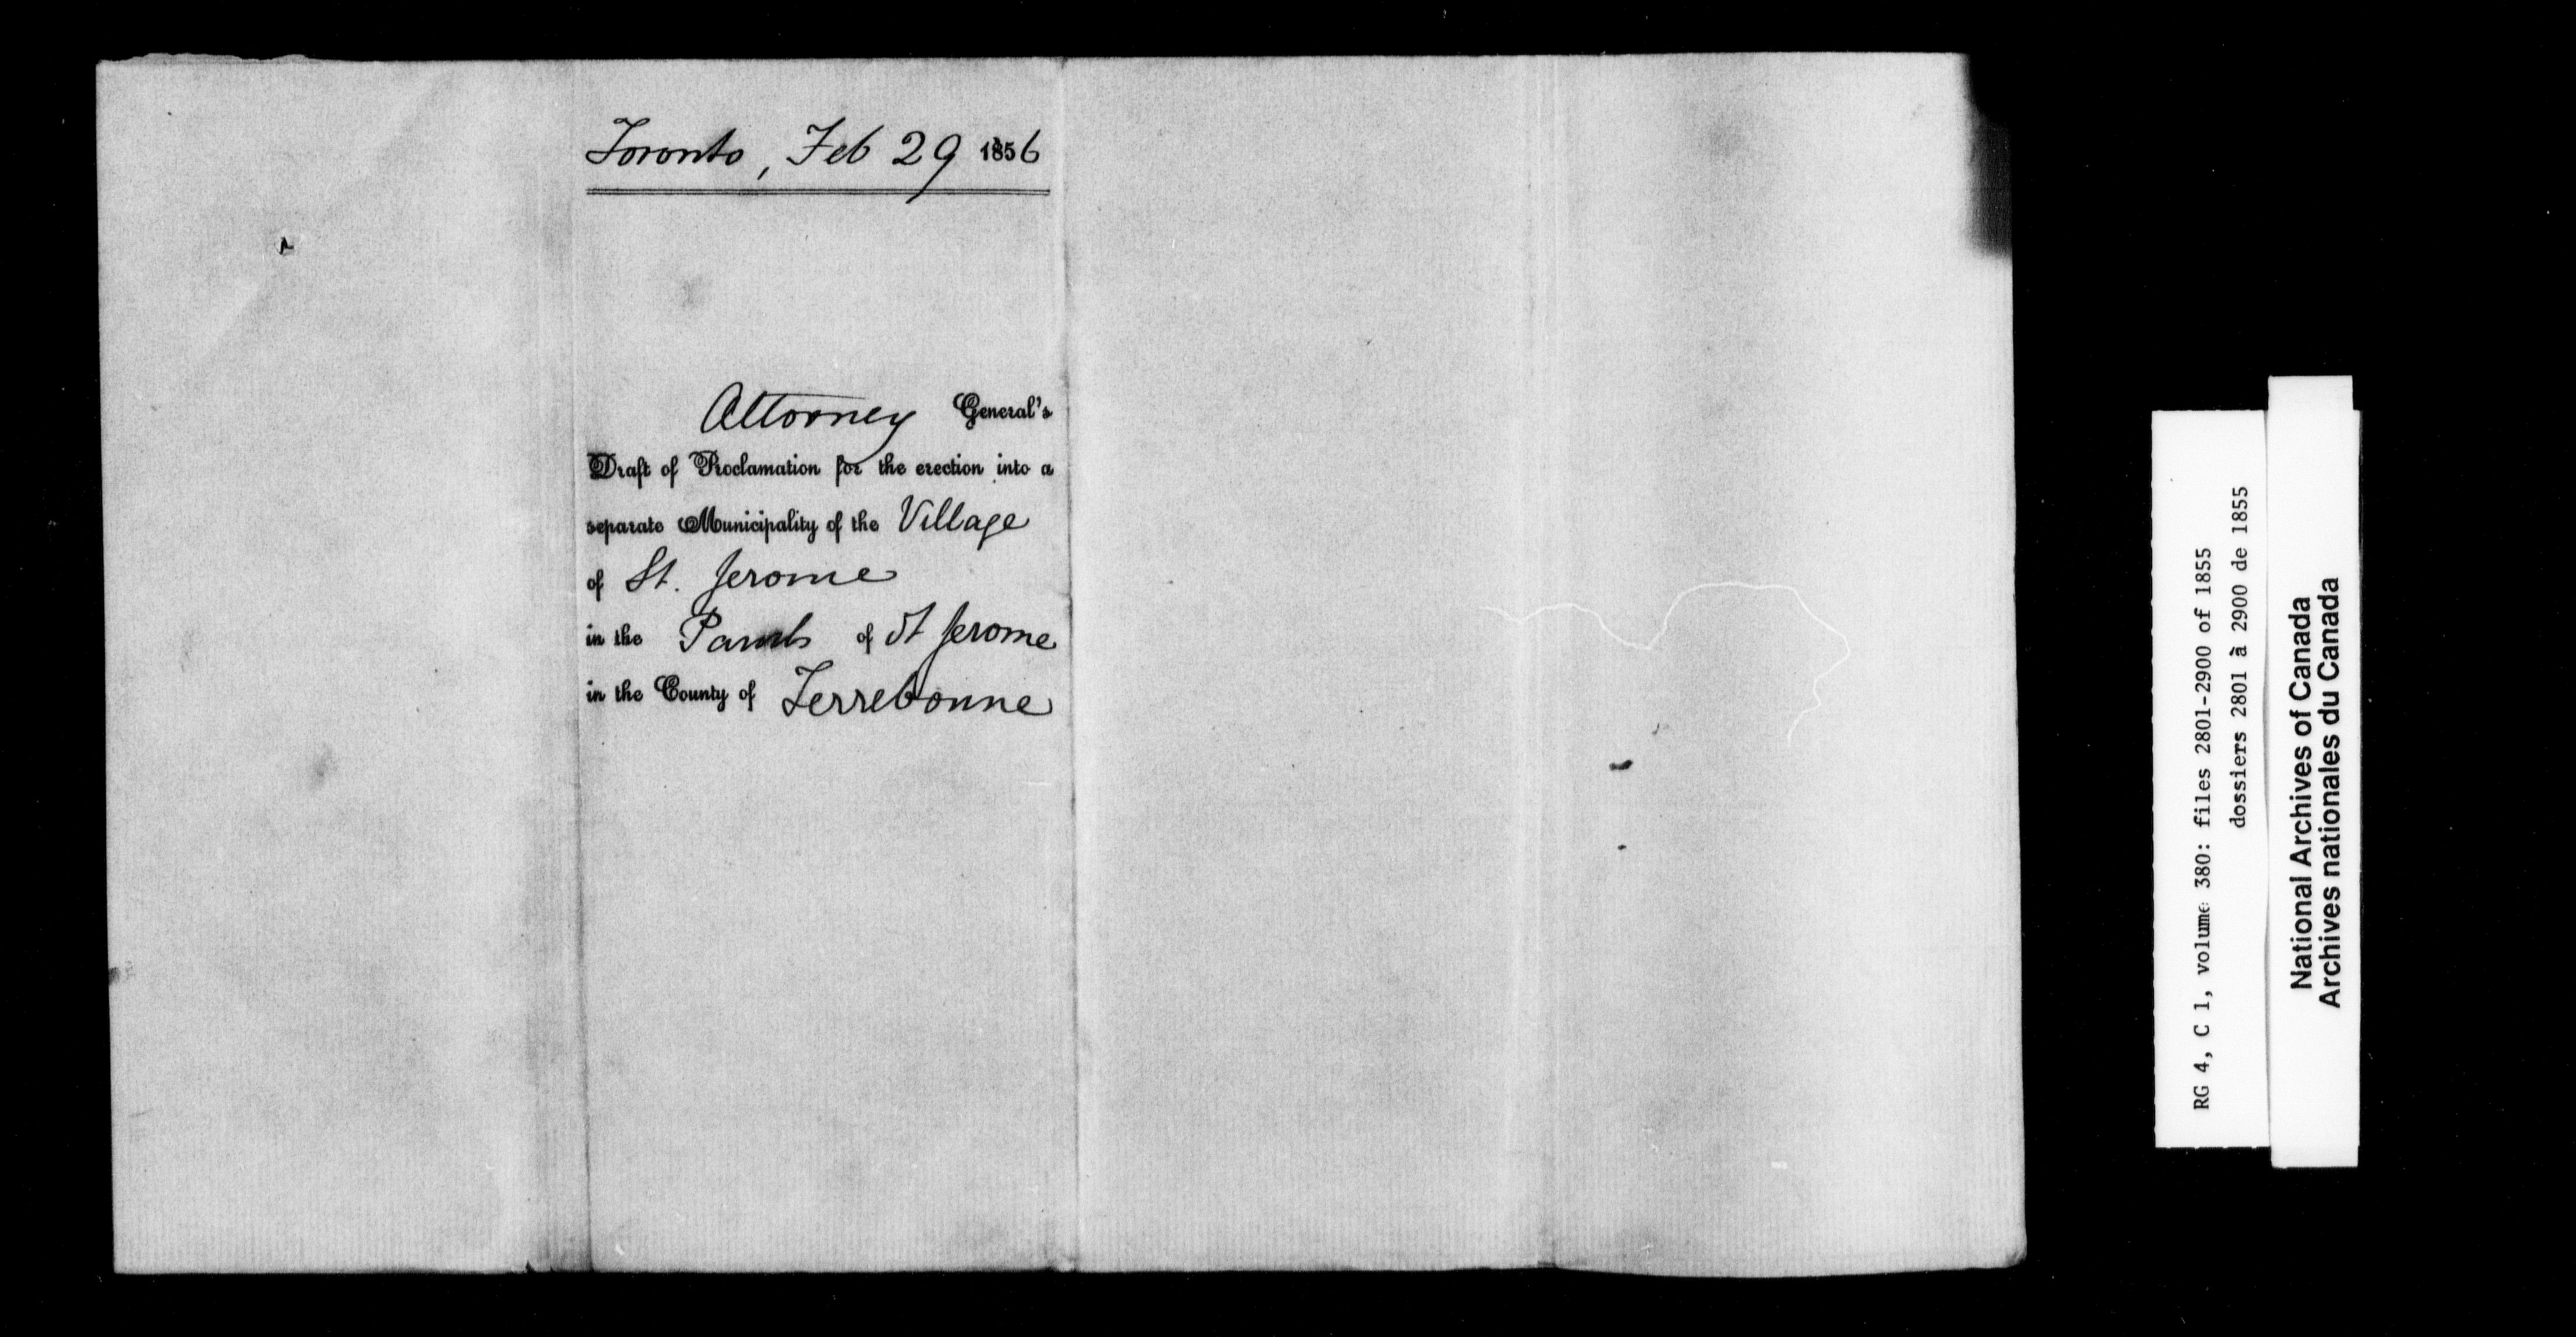 Toronto, Feb 29 1856
Attorney General's
Draft of Proclamation for the erection into a
separate Municipality of the Village
of St. Jerome
in the Parish of St Jerome
in the County of Terrebonne
RG 4, C 1, volume 380: files 2801-2900 of 1855
dossiers 2801 à 2900 de 1855
National Archives of Canada
Archives nationales du Canada